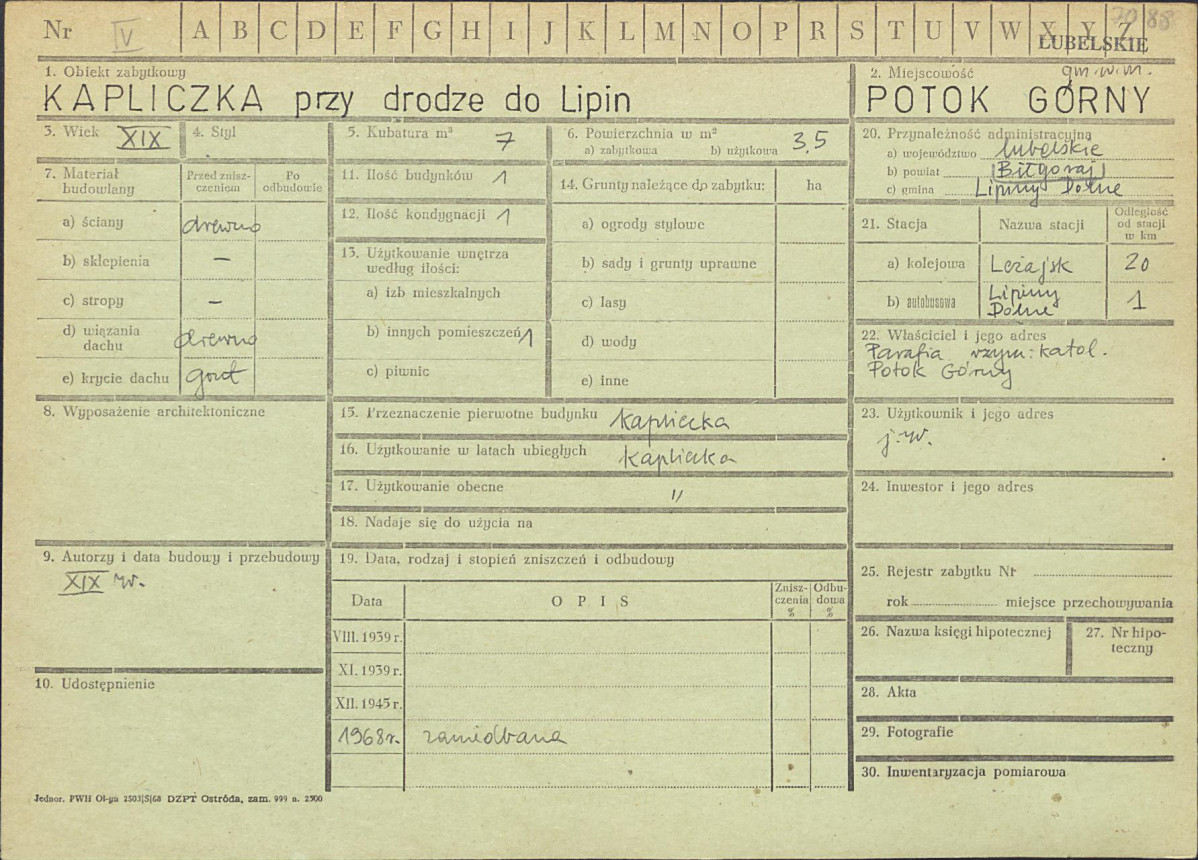 Nr V A B C D E F G H I J K L M N O P R S T U V W X Y Z
LUBELSKIE
1. Obiekt zabytkowy
KAPLICZKA przy drodze do Lipin
2. Miejscowość gm. w.m.
POTOK GÓRNY
3. Wiek XIX
4. Styl
5. Kubatura m³ 7
6. Powierzchnia w m² 3,5
a) zabytkowa b) użytkowa
7. Materiał budowlany
Przed znisz-
czeniem
Po
odbudowie
a) ściany drewno
b) sklepienia —
c) stropy –
d) wiązania
dachu drewno
e) krycie dachu gont
8. Wyposażenie architektoniczne
9. Autorzy i data budowy i przebudowy
XIX w.
10. Udostępnienie
11. Ilość budynków 1
12. Ilość kondygnacji 1
13. Użytkowanie wnętrza
według ilości:
a) izb mieszkalnych
b) innych pomieszczeń 1
c) piwnic
14. Grunty należące do zabytku: ha
a) ogrody stylowe
b) sady i grunty uprawne
c) lasy
d) wody
e) inne
15. Przeznaczenie pierwotne budynku kapliczka
16. Użytkowanie w latach ubiegłych kapliczka
17. Użytkowanie obecne "
18. Nadaje się do użycia na
19. Data, rodzaj i stopień zniszczeń i odbudowy
Data OPIS
Znisz-
czenia
%
Odbu-
dowa
%
VIII. 1939 r.
XI. 1939 r.
XII. 1945 r.
1968 r. zaniedbana
20. Przynależność administracyjna
a) województwo lubelskie
b) powiat Biłgoraj
c) gmina Lipiny Dolne
21. Stacja Nazwa stacji
Odległość
od stacji
w km
a) kolejowa Leżajsk 20
b) autobusowa Lipiny
Dolne 1
22. Właściciel i jego adres
Parafia rzym: katol.
Potok Górny
23. Użytkownik i jego adres
j.w.
24. Inwestor i jego adres
25. Rejestr zabytku Nr
rok miejsce przechowywania
26. Nazwa księgi hipotecznej
27. Nr hipo-
teczny
28. Akta
29. Fotografie
30. Inwentaryzacja pomiarowa
Jednor. PWH Ol-yn 2503|S|68 DZPT Ostróda, zam. 999 n. 2500